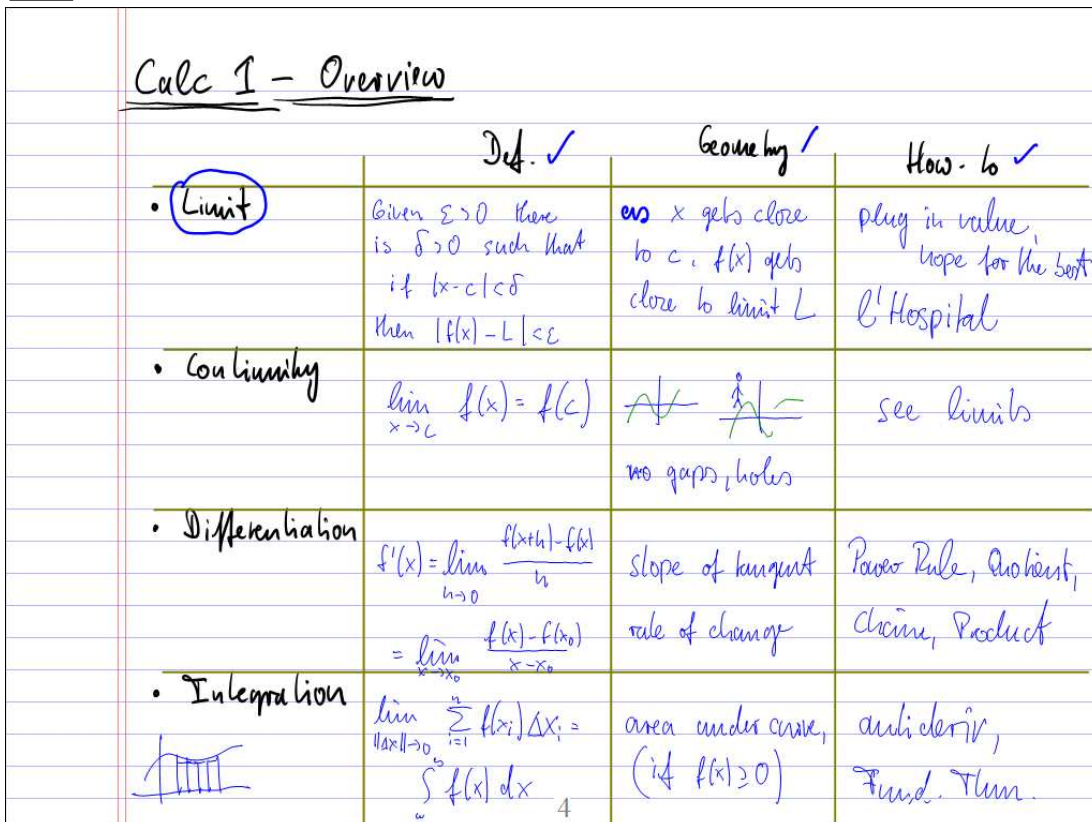 Calc 1 – Overview
Def. ✓
Geometry ✓
How-to ✓
• Limit
Given ε>0 there
is δ>0 such that
if |x-c|<δ
then |f(x)-L|<ε
as x gets close
to c, f(x) gets
close to limit L
plug in value,
hope for the best
l'Hospital
• Continuity
lim x→c f(x) = f(c)
no gaps, holes
see limits
• Differentiation
f'(x) = lim h→0 (f(x+h)-f(x))/h
= lim x→x₀ (f(x)-f(x₀))/(x-x₀)
slope of tangent
rate of change
Power Rule, Quotient,
Chain, Product
• Integration
lim ||Δx||→0 ∑ i=1 n f(xᵢ)Δxᵢ =
∫ a b f(x) dx
area under curve,
(if f(x)≥0)
antideriv,
Fund. Thm.
4